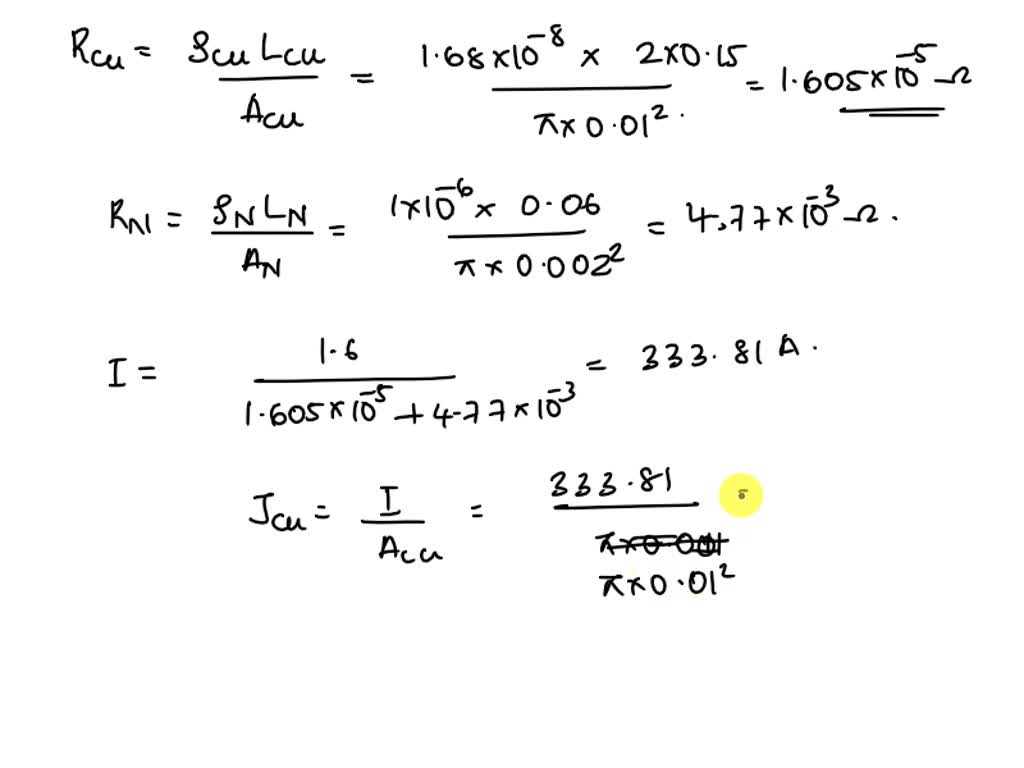 R_Cu = ρ_Cu L_Cu / A_Cu = 1.68×10^-8 × 2×0.15 / π×0.01^2 . = 1.605×10^-5 Ω
R_N1 = ρ_N L_N / A_N = 1×10^-6 × 0.06 / π×0.002^2 = 4.77×10^-3 Ω .
I = 1.6 / 1.605×10^-5 + 4.77×10^-3 = 333.81 A .
J_Cu = I / A_Cu = 333.81 / π×0.01^2 =